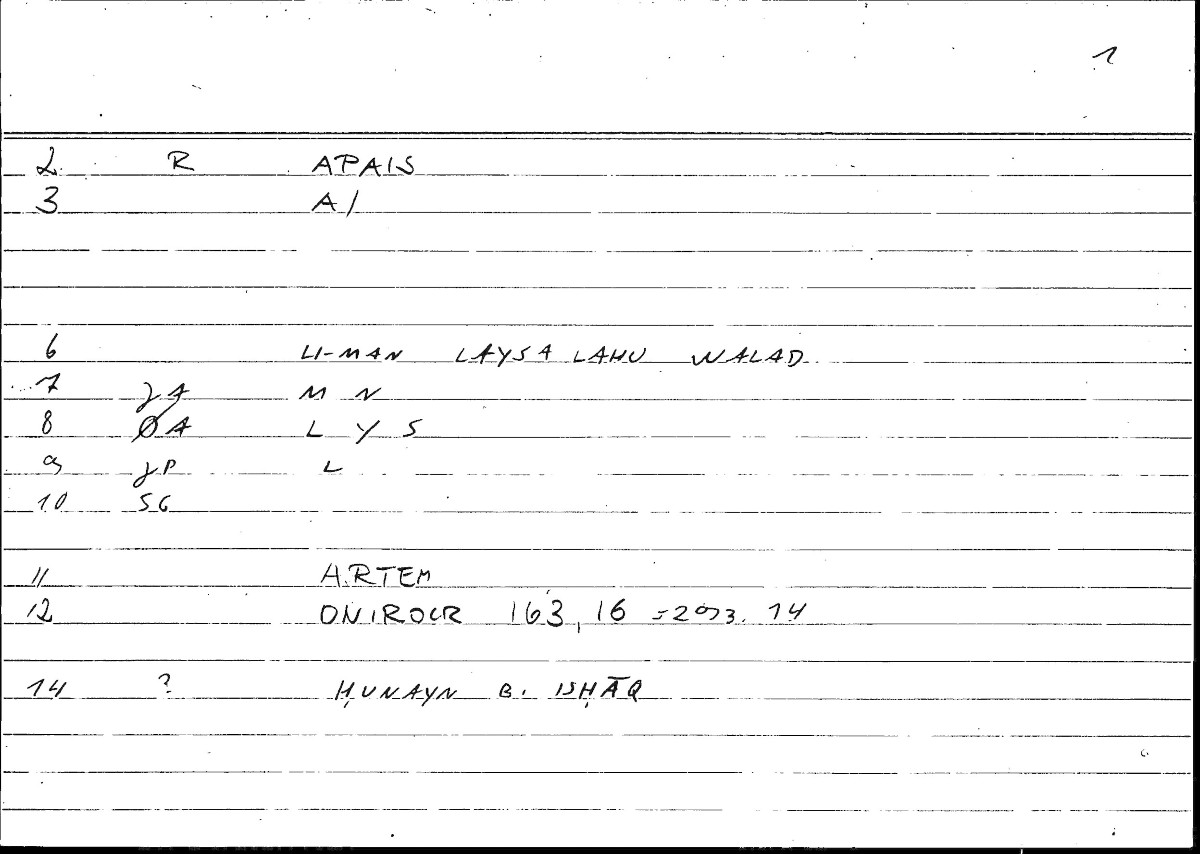 1
2 R APAIS
3 A/
6 LI-MAN LAYSA LAHU WALAD
7 M N
8 ØA L Y S
9 L
10 SG
11 ARTEM
12 ONIROCR 163,16 = 293.14
14 ? ḤUNAYN B. ISḤĀQ